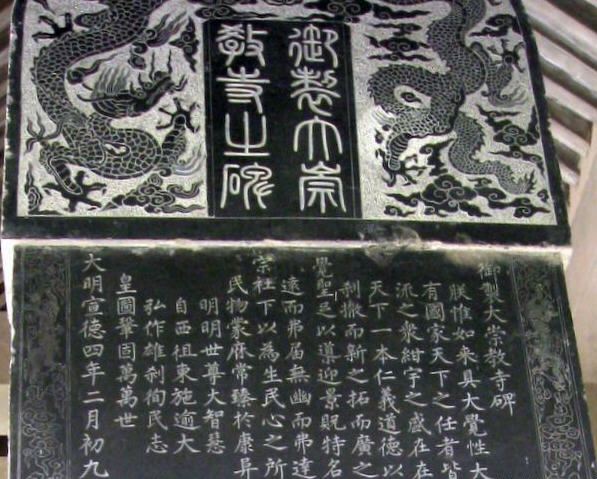 御製大崇
教寺之碑
御製大崇教寺碑
朕惟如來具大覺性大
有國家天下之任者皆
派之衆紺宇之盛在在
天下一本仁義道德以
刹撤而新之拓而廣之
覺聖之以導迎景貺特名
遠而弗屆無幽而弗達
宗社下以為生民心之所
民物蒙庥常臻於康
明明世尊大智慧
自西徂東施逾大
弘作雄刹徇民志
皇圖鞏固萬萬世
大明宣德四年二月初九